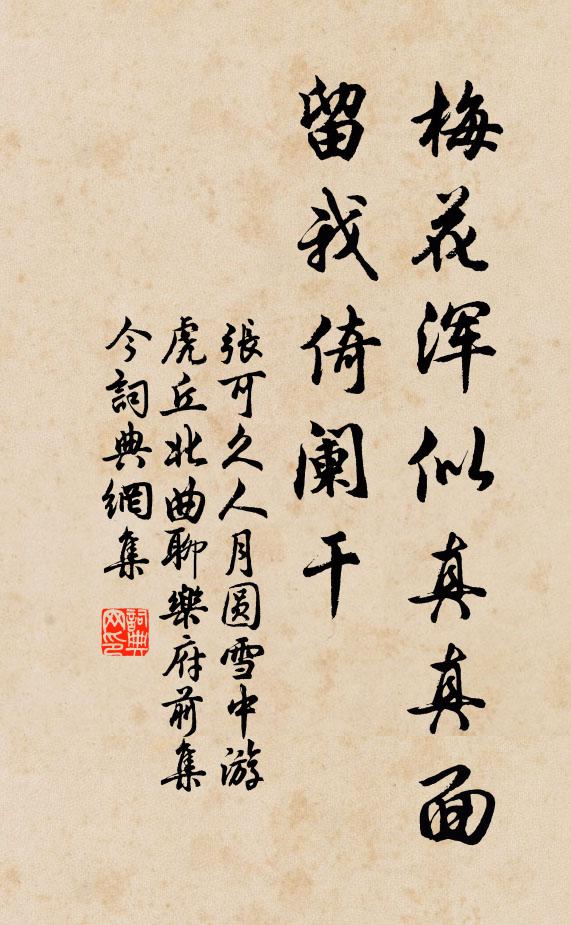 梅花浑似真真面
留我倚阑干
張可久人月圆雪中游
虎丘北曲聊樂府前集
今詞典網集
詞典
网印